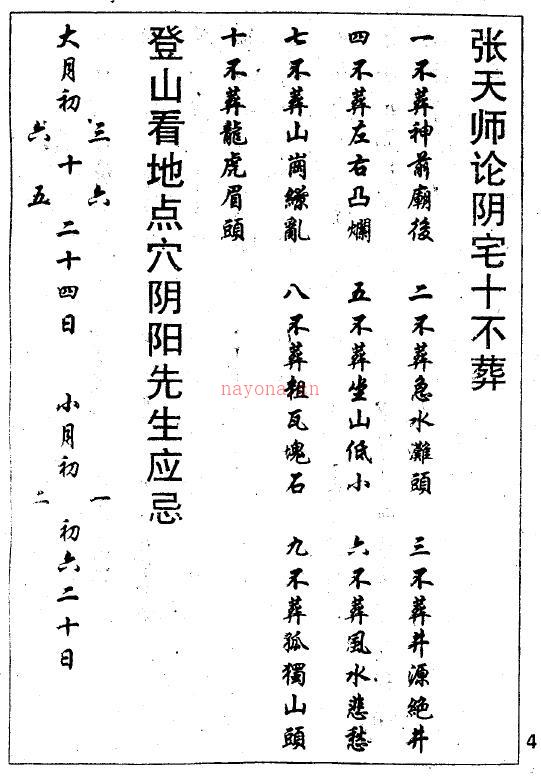 张天师论阴宅十不葬
一不葬神前廟後 二不葬急水灘頭 三不葬井源絶井
四不葬左右凸爛 五不葬坐山低小 六不葬風水悲愁
七不葬山崗繚亂 八不葬粗瓦塊石 九不葬孤獨山頭
十不葬龍虎眉頭
登山看地点穴阴阳先生应忌
大月初三六十六五二十四日 小月初一二初六二十日
nayona.cn
4